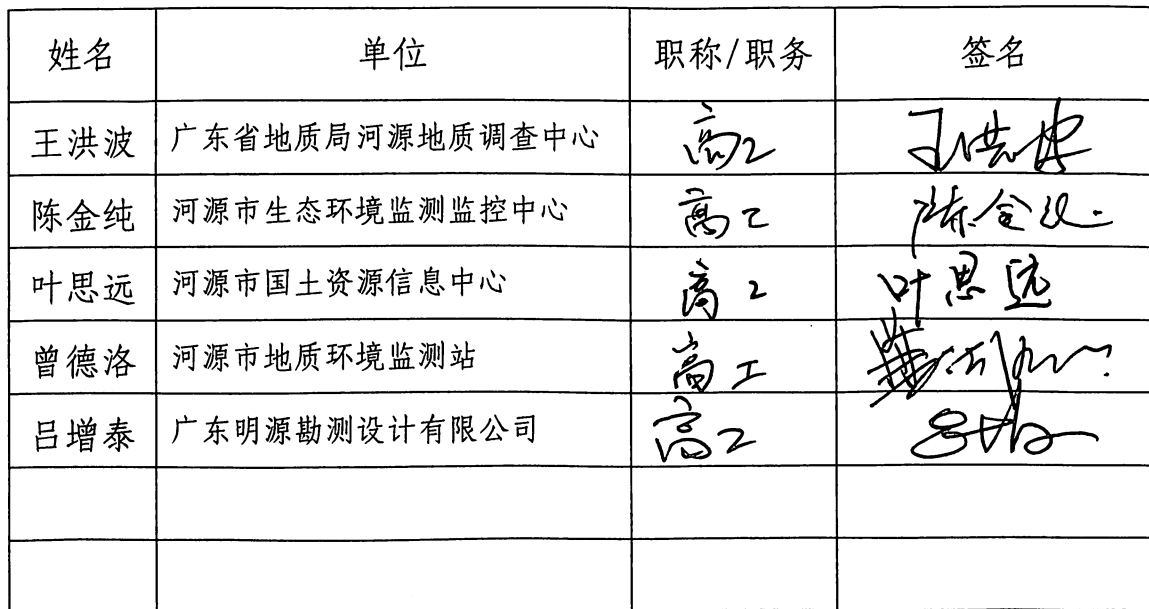 姓名 单位 职称/职务 签名
王洪波 广东省地质局河源地质调查中心 高工 王洪波
陈金纯 河源市生态环境监测监控中心 高工 陈金纯
叶思远 河源市国土资源信息中心 高工 叶思远
曾德洛 河源市地质环境监测站 高工
吕增泰 广东明源勘测设计有限公司 高工